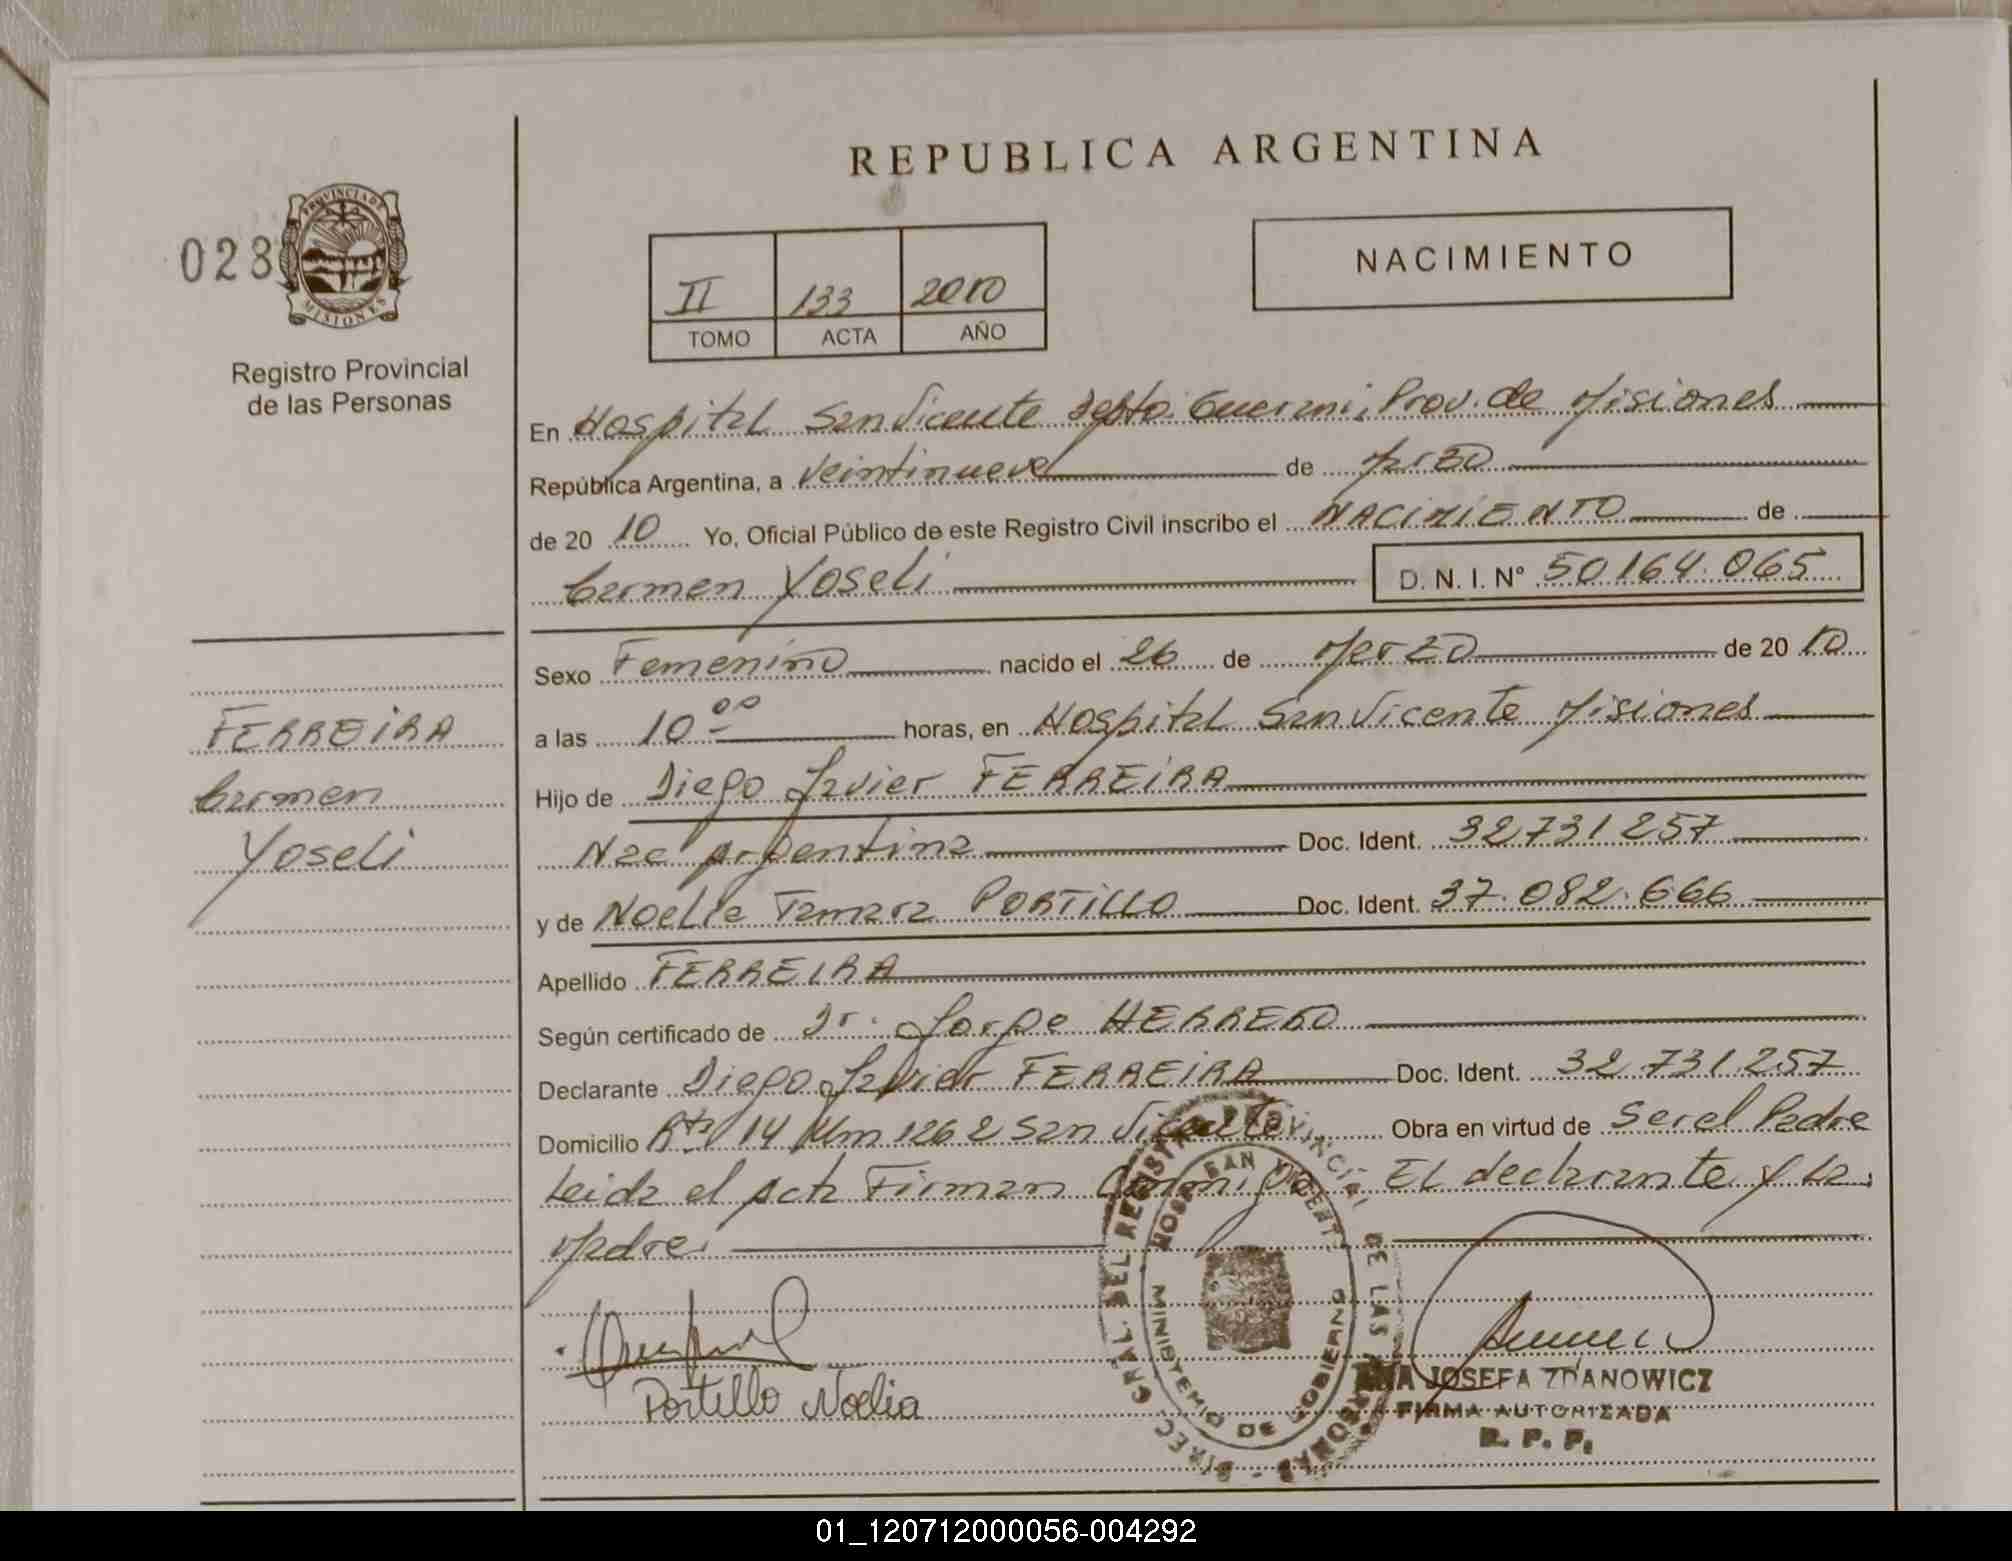 REPUBLICA ARGENTINA
028
PROVINCIA DE
MISIONES
Registro Provincial
de las Personas
II 133 2010
TOMO ACTA AÑO
NACIMIENTO
En Hospital San Vicente Depto. Guarani, Prov. de Misiones
República Argentina, a Veintinueve de Marzo
de 20 10 Yo, Oficial Público de este Registro Civil inscribo el NACIMIENTO de
Carmen Yoseli D. N. I. N° 50.164.065
Sexo Femenino nacido el 26 de Marzo de 20 10
a las 10 00 horas, en Hospital San Vicente Misiones
Hijo de Diego Javier FERREIRA
Nac Argentina Doc. Ident. 32731257
y de Noelia Tamara PORTILLO Doc. Ident. 37.082.666
Apellido FERREIRA
Según certificado de Dr. Jorge HERRERO
Declarante Diego Javier FERREIRA Doc. Ident. 32.731.257
Domicilio Rta 14 Km 1262 San Vicente Obra en virtud de Ser el Padre
Leida el Acta Firman Conmigo El declarante y La
Madre.
FERREIRA
Carmen
Yoseli
Portillo Noelia
DIREC. GRAL. DEL REGISTRO PROVINCIAL DE LAS PERSONAS
HOSP. SAN VICENTE
MINISTERIO DE GOBIERNO
ANA JOSEFA ZDANOWICZ
FIRMA AUTORIZADA
R. P. P.
01_120712000056-004292